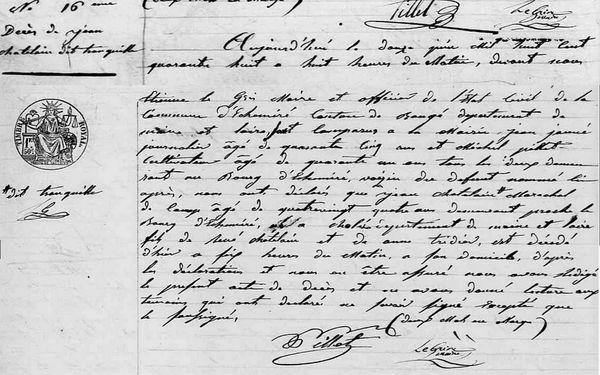 No 16 eme
Decès de jean
chatelain dit tranquille
Pillet
Le Gris
maire
Aujourd'hui le douze juin mil huit cent
quarante huit a huit heures du Matin, devant nous
Etienne le Gris Maire et officier de l'Etat Civil de la
Commune d'Echemiré Canton de Baugé département de
maine et Loire, sont comparus a la Mairie jean
journalier âgé de quarante cinq ans et Michel pillet
Cultivateur âgé de quarante un an tous les deux demeu
rant au Bourg d'Echemiré, voisin du defunt nommé ci
après, nous ont déclaré que jean chatelain* Marechal
de Camp âgé de quatrevingt quatre ans demeurant proche le
Bourg d'Echemiré, né a département de maine et Loire
fils de René chatelain et de anne est décédé
d'hier a six heures du Matin, a son domicile, d'après
les déclaration et nous en être assuré nous avons rédigé
le present acte de décès et en avons donné lecture aux
temoins qui ont déclaré ne savoir signé Excepté que
le soussigné,
(deux Mot en Marge)
*dit tranquille
LG
TIMBRE ROYAL
Pillet
Le Gris
maire